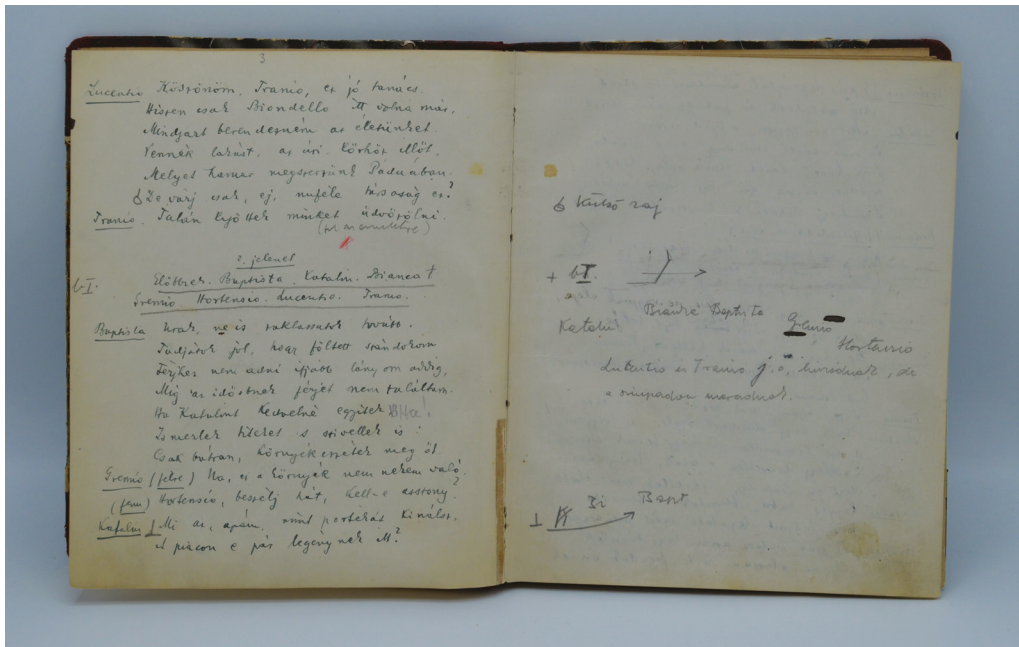 3
Lucentio Köszönöm, Tranio, ez jó tanács.
Hiszen csak Biondello itt volna már,
Mindjárt berendezném az életünket.
Vennék lakást, az úri körhöz illőt,
Melyet hamar megszerzünk Páduában.
De várj csak, ej, miféle társaság ez?
Tranio. Talán kijöttek minket üdvözölni.
2. jelenet
b I. Előbbiek. Baptista. Katalin. Bianca
Gremio Hortensio. Lucentio. Tranio.
Baptista Urak, ne is zaklassatok tovább.
Tudjátok jól, hogy föltett szándokom
Férjhez nem adni ifjabb lányom addig,
Míg az idősbnek férjét nem találtam.
Ha Katalint kedvelné egyitek
Ismerlek titeket s szivellek is:
Csak bátran, környékezzétek meg őt
Gremio (félre) Na, ez a környék nem nekem való.
(fenn) Hortensio, beszélj hát, kell-e asszony?
Katalin ⊥ Mi az, apám, mint portékát kinálsz,
A piacon e pár legénynek itt?
Külső zaj
+ bI.
Katalin Bianca Baptista Gremio
Hortensio
Lucentio és Tranio j. ó. húzódnak, de
a szinpadon maradnak.
Bi Bapt
⊥